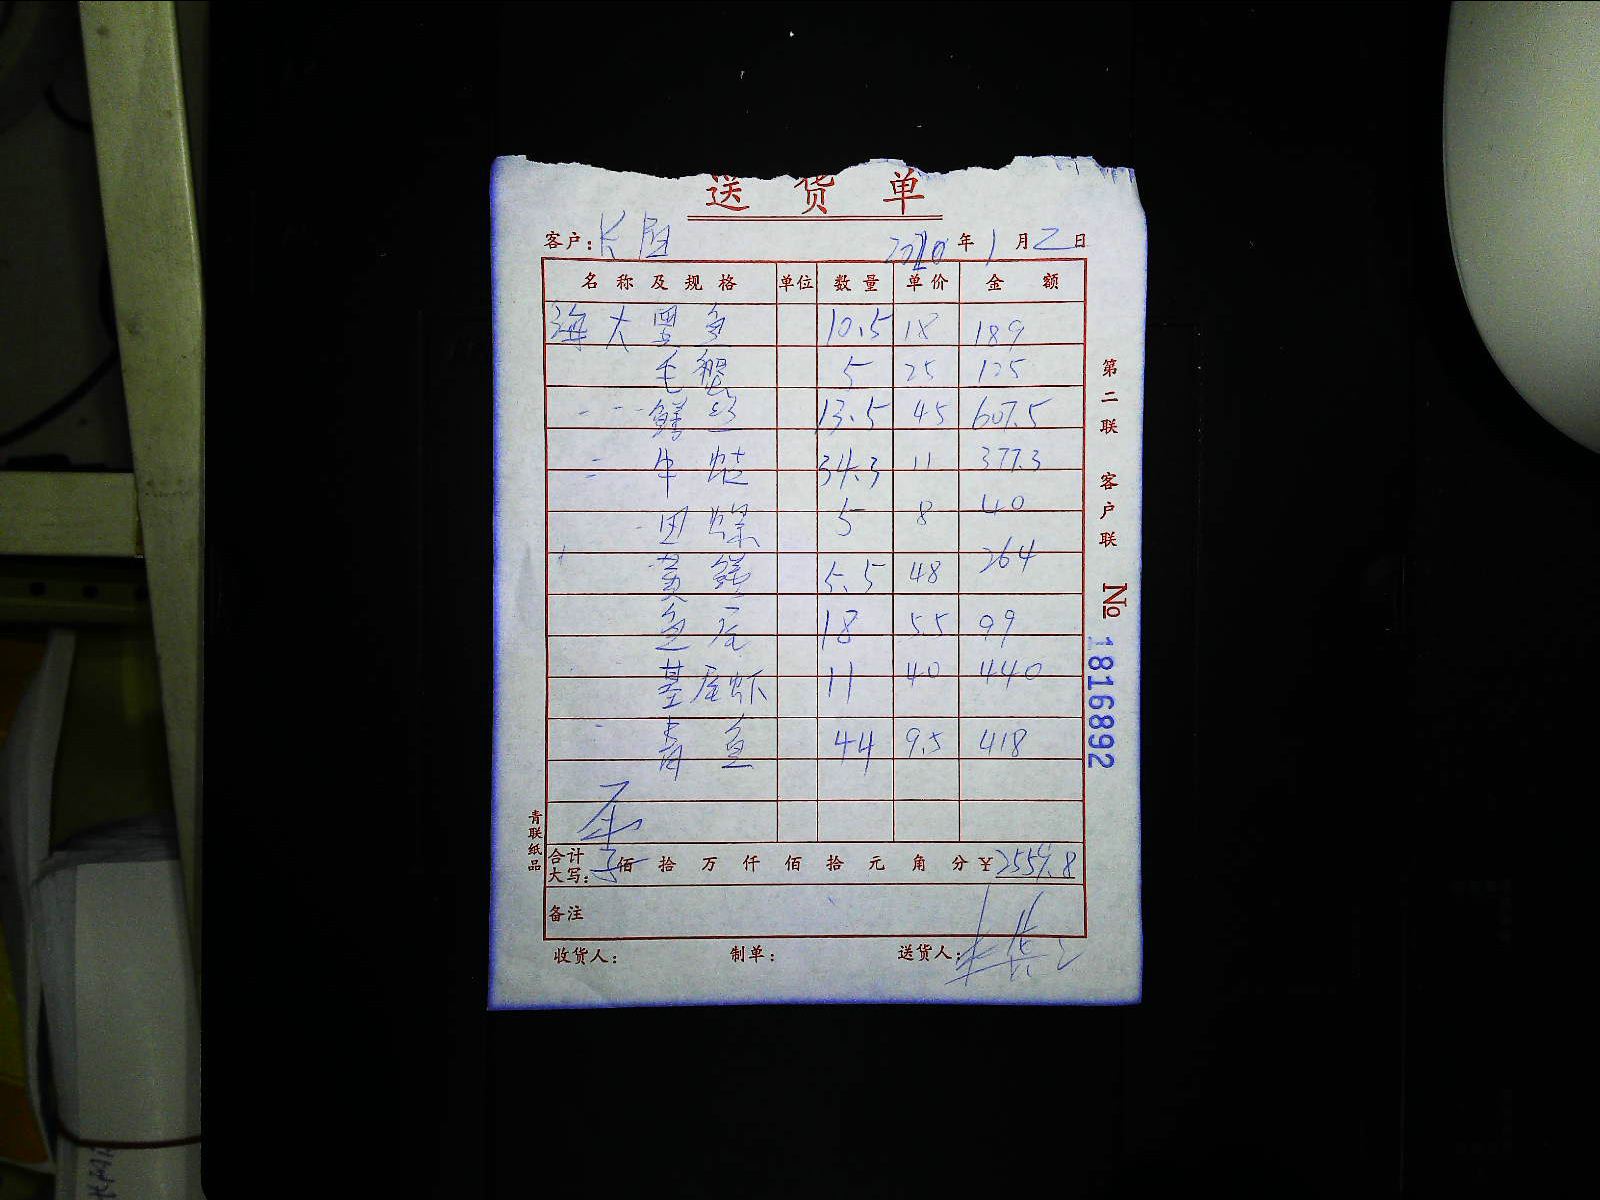 送货单
客户: 长 2020年1月2日
名称及规格 单位 数量 单价 金额
海大黑鱼 10.5 18 189
毛蟹 5 25 125
鳝丝 13.5 45 607.5
牛蛙 34.3 11 377.3
田螺 5 8 40
黄鳝 5.5 48 264
鱼尾 18 5.5 99
基尾虾 11 40 440
青鱼 44 9.5 418
合计大写: 佰拾万仟佰拾元角分¥2559.8
备注
收货人: 制单: 送货人:
第二联 客户联
№ 1816892
青联纸品